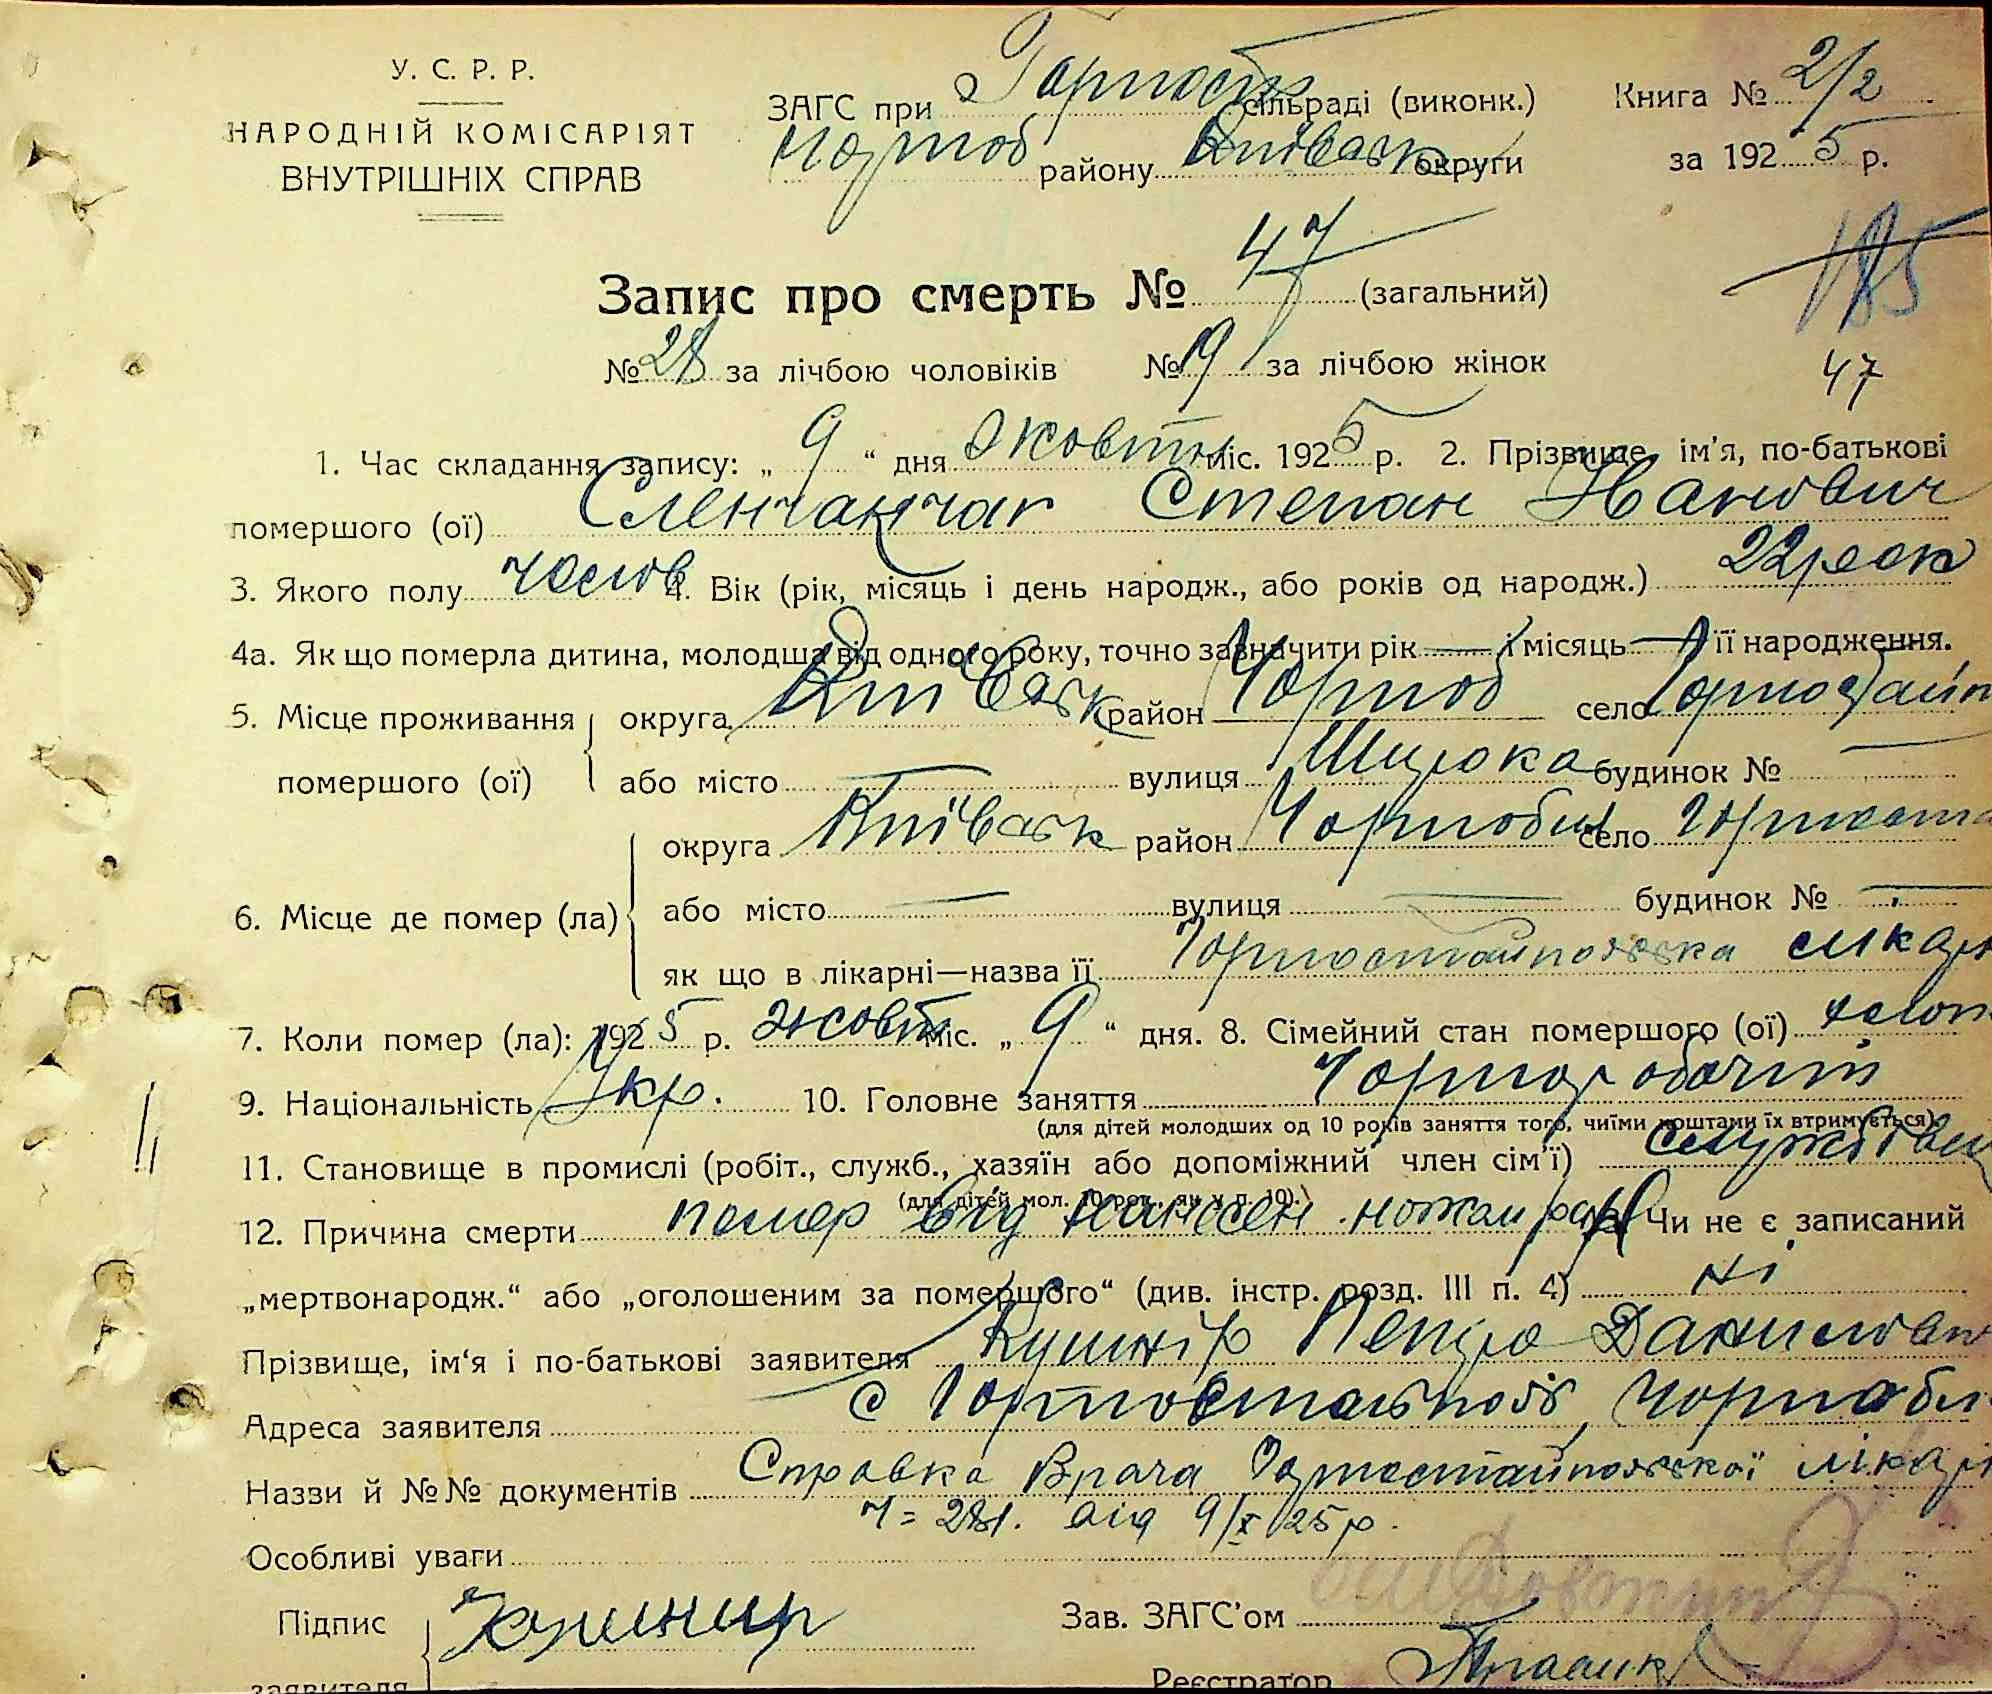 У. С. Р. Р.
НАРОДНІЙ КОМІСАРІЯТ
ВНУТРІШНІХ СПРАВ
ЗАГС при Горност сільраді (виконк.)
Чорноб району Київськ округи
Книга № 2/2
за 1925 р.
185
Запис про смерть № 47 (загальний)
№ 28 за лічбою чоловіків № 19 за лічбою жінок
47
1. Час складання запису: „ 9 “ дня жовтн міс. 1925 р. 2. Прізвище, ім'я, по-батькові
помершого (ої) Степан Иванович
3. Якого полу чолов 4. Вік (рік, місяць і день народж., або років од народж.) 22 рок
4а. Як що померла дитина, молодша від одного року, точно зазначити рік — і місяць — її народження.
5. Місце проживання помершого (ої) округа Київськ район Чорноб село Горностайп
або місто — вулиця Широка будинок № —
6. Місце де помер (ла) округа Київськ район Чорнобил село Горноста
або місто — вулиця — будинок № —
як що в лікарні—назва її Горностайпольска лікарн
7. Коли помер (ла): 1925 р. жовтн міс. „ 9 “ дня. 8. Сімейний стан помершого (ої)
9. Національність Укр. 10. Головне заняття Чорноробочий
(для дітей молодших од 10 років заняття того, чиїми коштами їх втримується)
11. Становище в промислі (робіт., служб., хазяїн або допоміжний член сім'ї)
(для дітей мол. 10 рок., як у п. 10).
12. Причина смерти помер від нанесен. ножом ран Чи не є записаний
„мертвонародж.“ або „оголошеним за помершого“ (див. інстр. розд. III п. 4) ні
Прізвище, ім'я і по-батькові заявителя Кушнір Петро Данилови
Адреса заявителя с Горностайполь, Чорнобил
Назви й №№ документів Справка Врача Горностайпольскої лікарн
Ч = 281. від 9/X 25 р.
Особливі уваги
Підпис заявителя Кушнир
Зав. ЗАГС'ом
Реєстратор